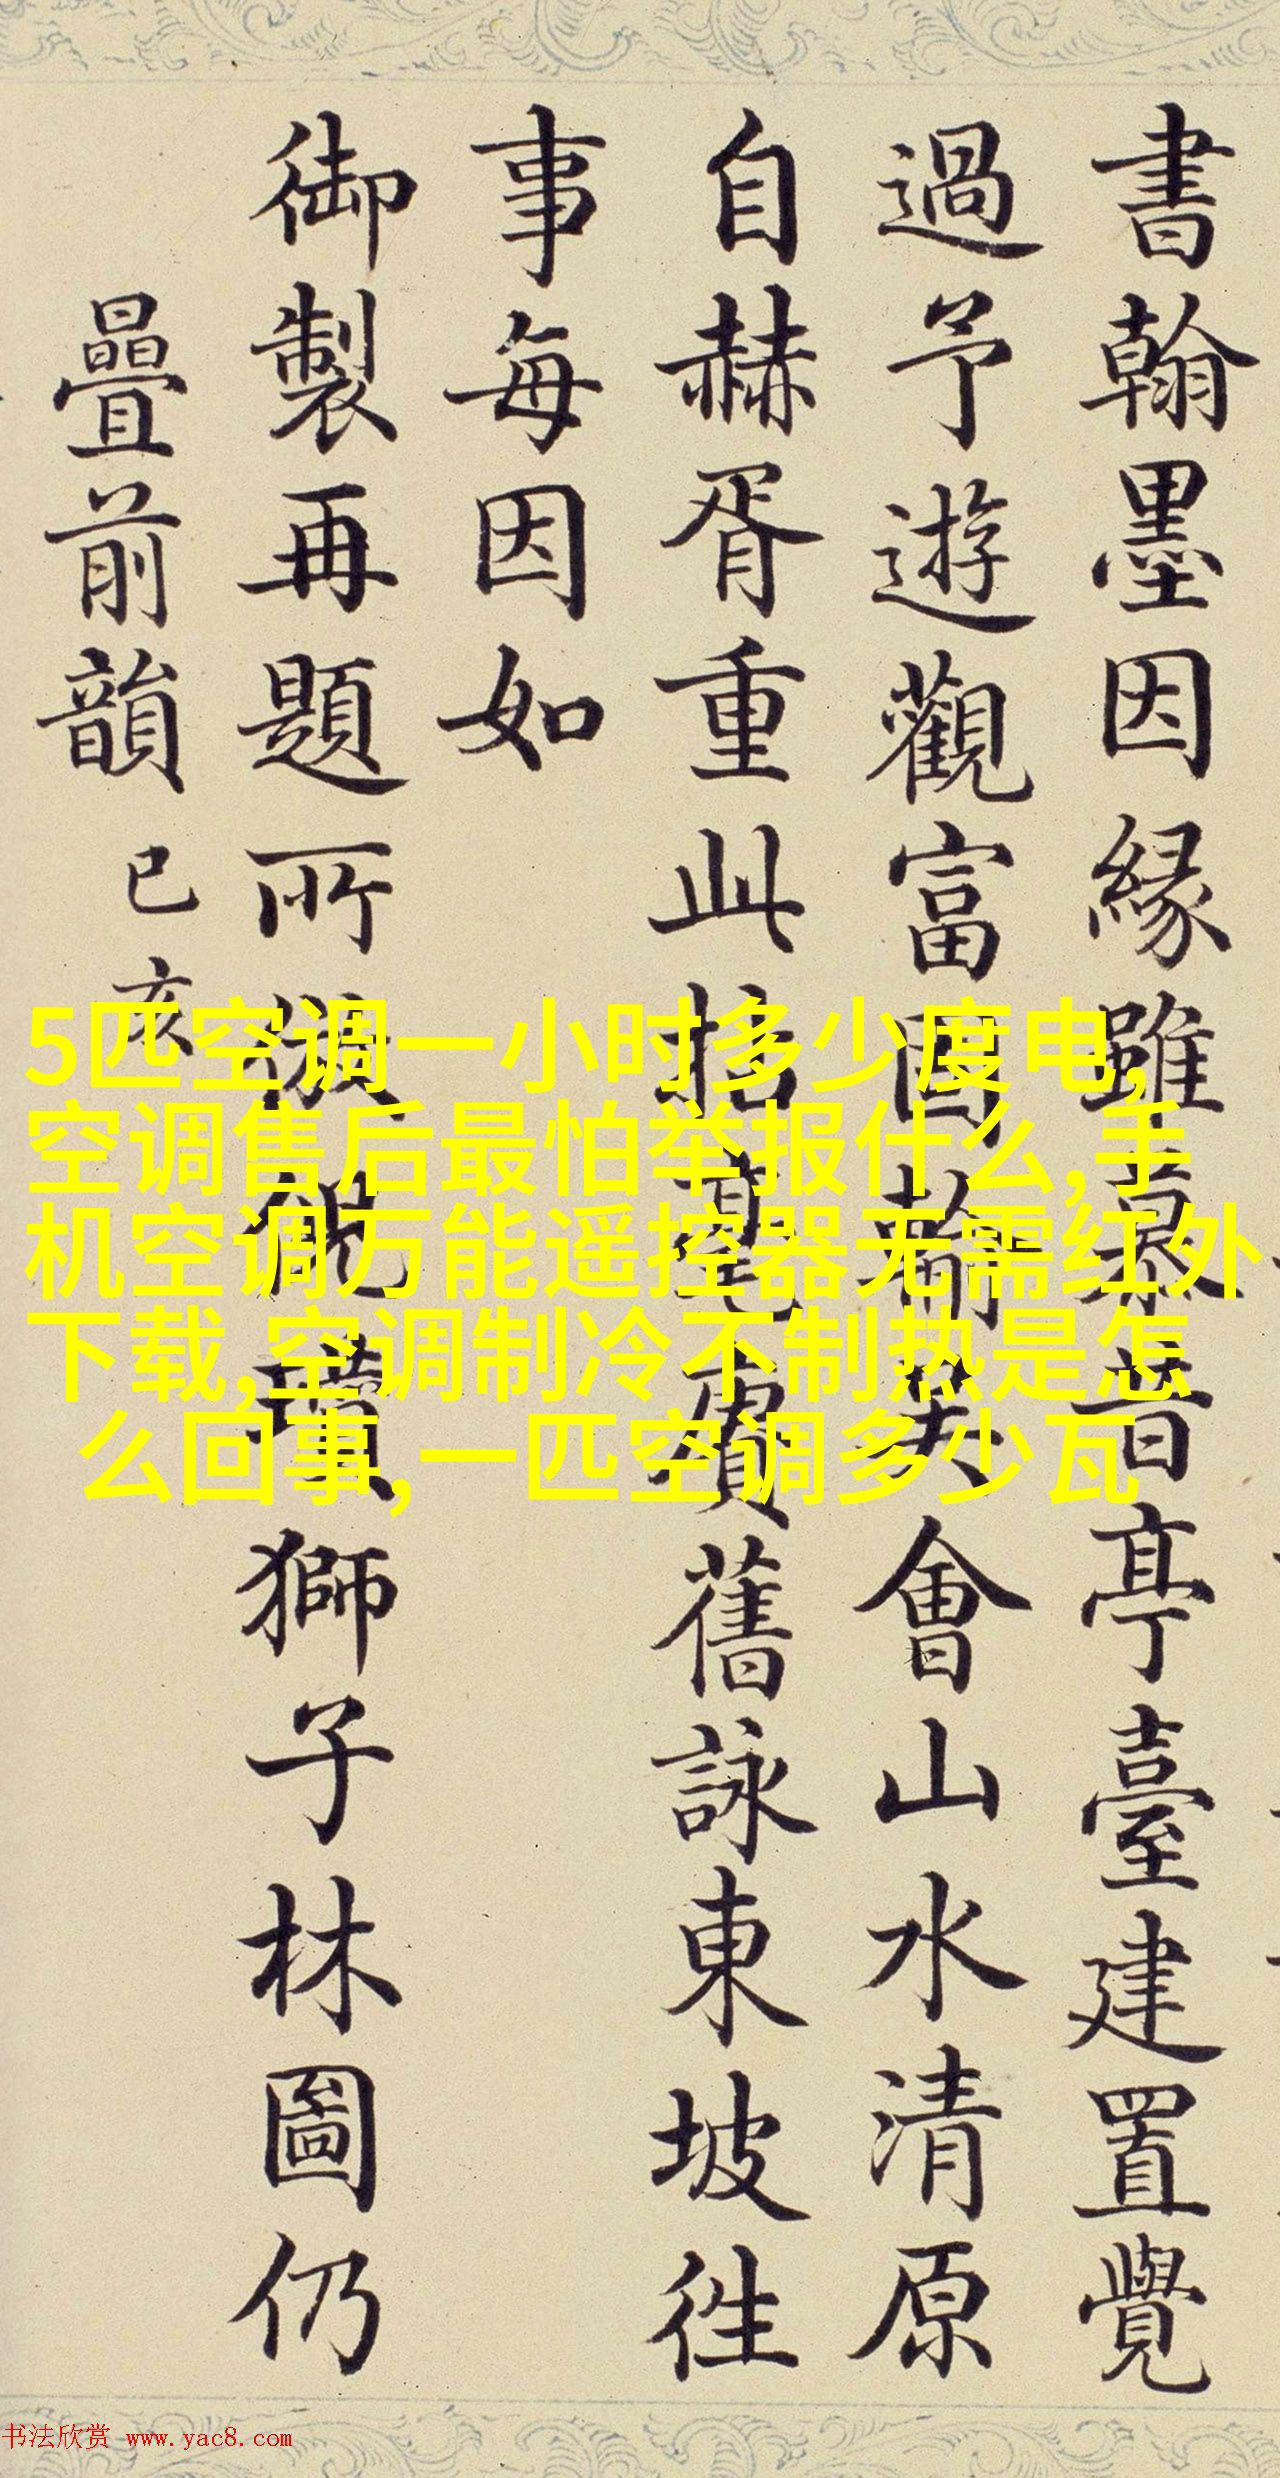 書翰墨因緣雖慕昔亭臺建置覺
過予遊觀富因翰英會山水清原
自赫胥重此括蒐賡舊詠東坡徃
事每因如
御製再題所
獅子林圖仍
疊前韻 已亥
5匹空调一小时多少度电,
空调售后最怕举报什么,手
机空调万能遥控器无需红外
下载,空调制冷不制热是怎
么回事,一匹空调多少瓦
书法欣赏 www.yac8.com